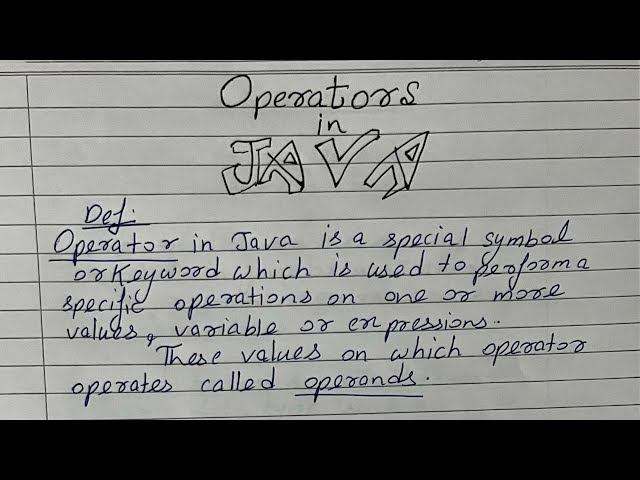 Operators
in
JAVA
Def:
Operator in Java is a special symbol
or Keyword which is used to perform a
specific operations on one or more
values, variable or expressions.
These values on which operator
operates called operands.